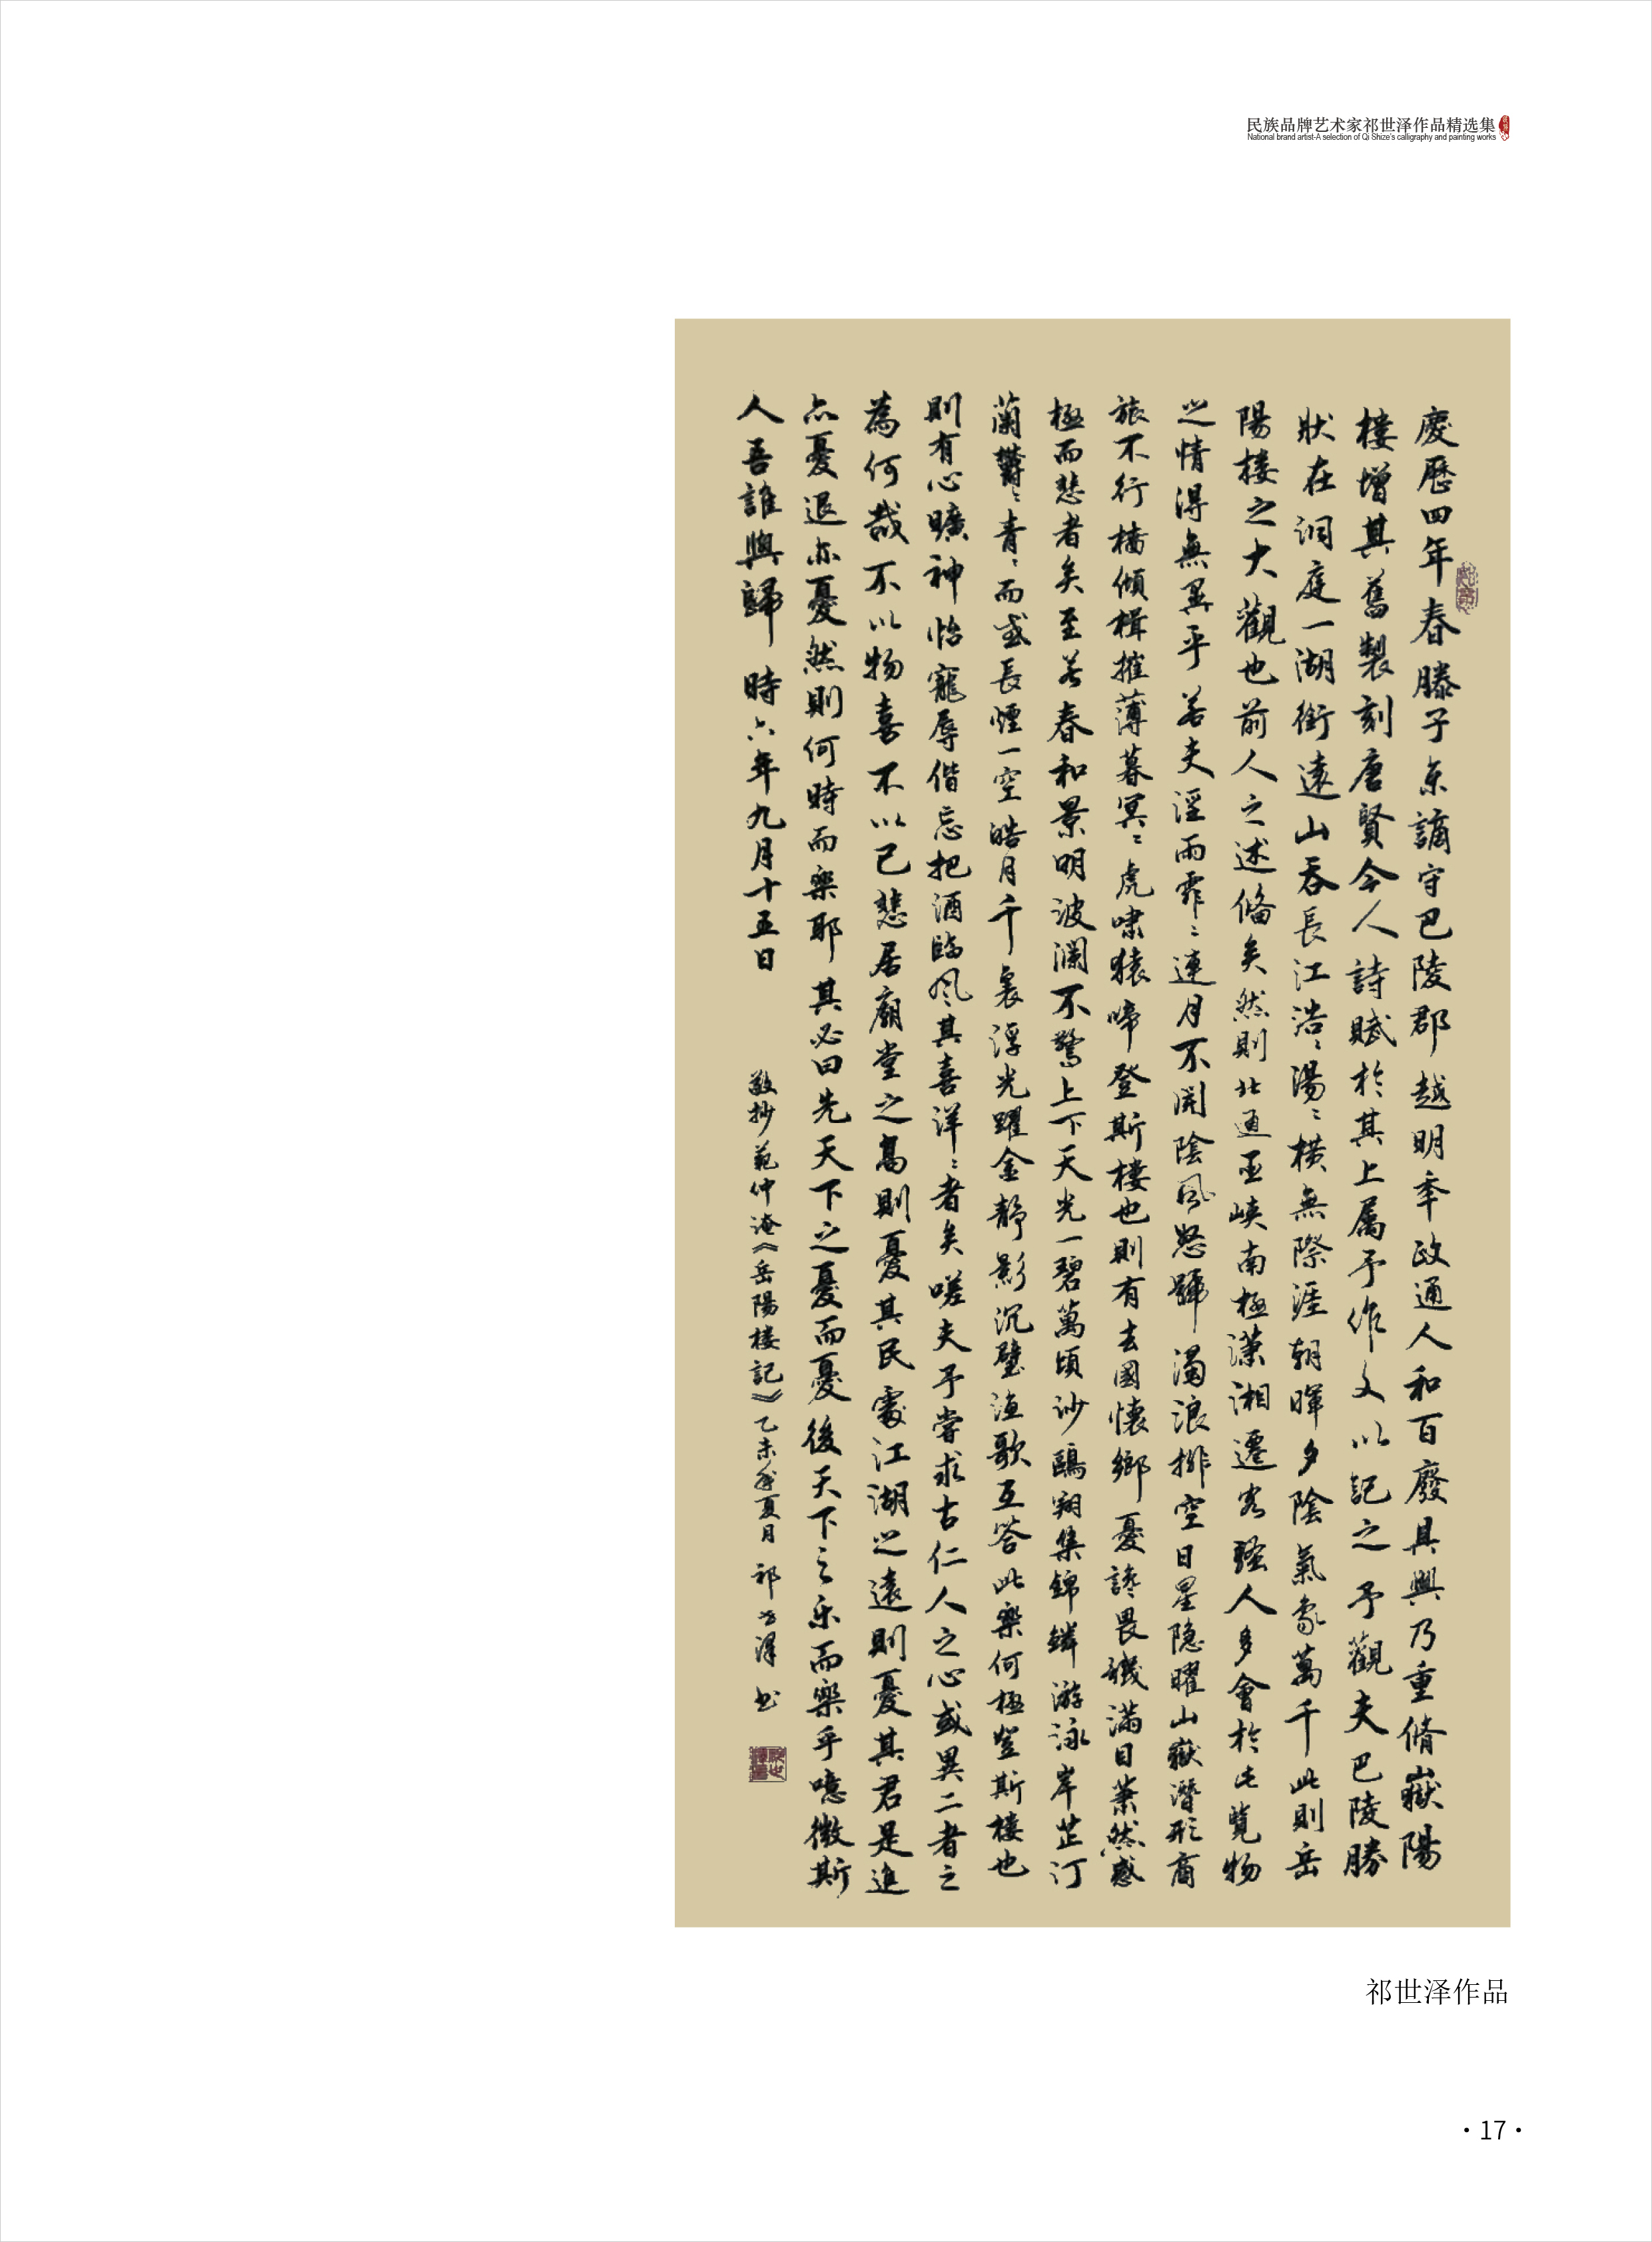 民族品牌艺术家祁世泽作品精选集
National brand artist-A selection of Qi Shize's calligraphy and painting works
慶歷四年春滕子京謫守巴陵郡越明年政通人和百廢具興乃重脩嶽陽
樓增其舊製刻唐賢今人詩賦於其上屬予作文以記之予觀夫巴陵勝
狀在洞庭一湖銜遠山吞長江浩〻湯〻橫無際涯朝暉夕陰氣象萬千此則岳
陽樓之大觀也前人之述俻矣然則北通巫峽南極瀟湘遷客騷人多會於此覽物
之情得無異乎若夫淫雨霏〻連月不開陰風怒號濁浪排空日星隱曜山嶽潛形商
旅不行檣傾楫摧薄暮冥〻虎嘯猿啼登斯樓也則有去國懷鄉憂讒畏譏滿目蕭然感
極而悲者矣至若春和景明波瀾不驚上下天光一碧萬頃沙鷗翔集錦鱗游泳岸芷汀
蘭鬱〻青〻而或長煙一空皓月千裏浮光躍金靜影沉璧漁歌互答此樂何極登斯樓也
則有心曠神怡寵辱偕忘把酒臨風其喜洋〻者矣嗟夫予嘗求古仁人之心或異二者之
為何哉不以物喜不以己悲居廟堂之高則憂其民處江湖之遠則憂其君是進
亦憂退亦憂然則何時而樂耶其必曰先天下之憂而憂後天下之乐而樂乎噫微斯
人吾誰與歸 時六年九月十五日
敬抄範仲淹《岳陽樓記》乙未年夏月 祁世澤 书
祁世泽作品
·17·